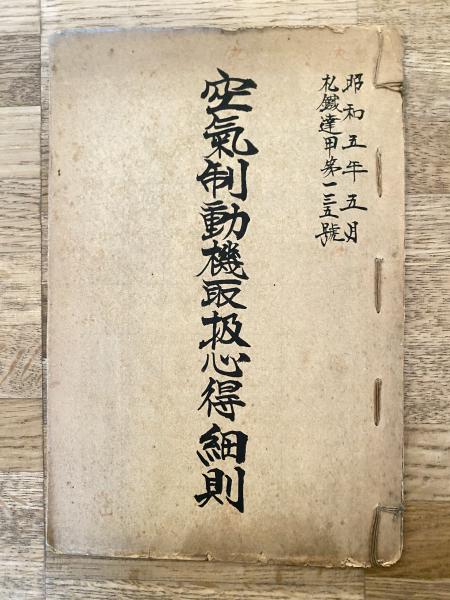 昭和五年五月
札鐵達甲第一三五號
空氣制動機取扱心得細則